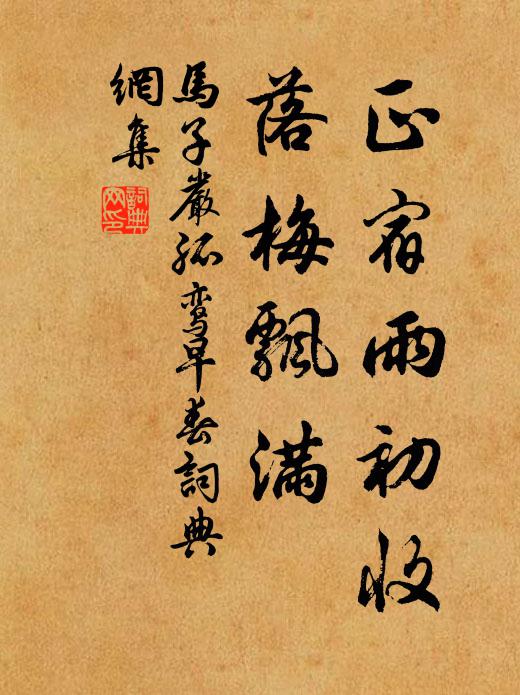 正宿雨初收
落梅飄滿
馬子嚴孤鸾早春詞典
網集
詞典
网印